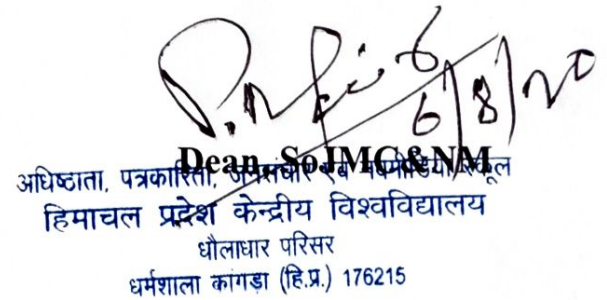 6/8/20
Dean, SoJMC&NM
अधिष्ठाता, पत्रकारिता, जनसंचार एवं नवमीडिया स्कूल
हिमाचल प्रदेश केन्द्रीय विश्वविद्यालय
धौलाधार परिसर
धर्मशाला कांगड़ा (हि.प्र.) 176215